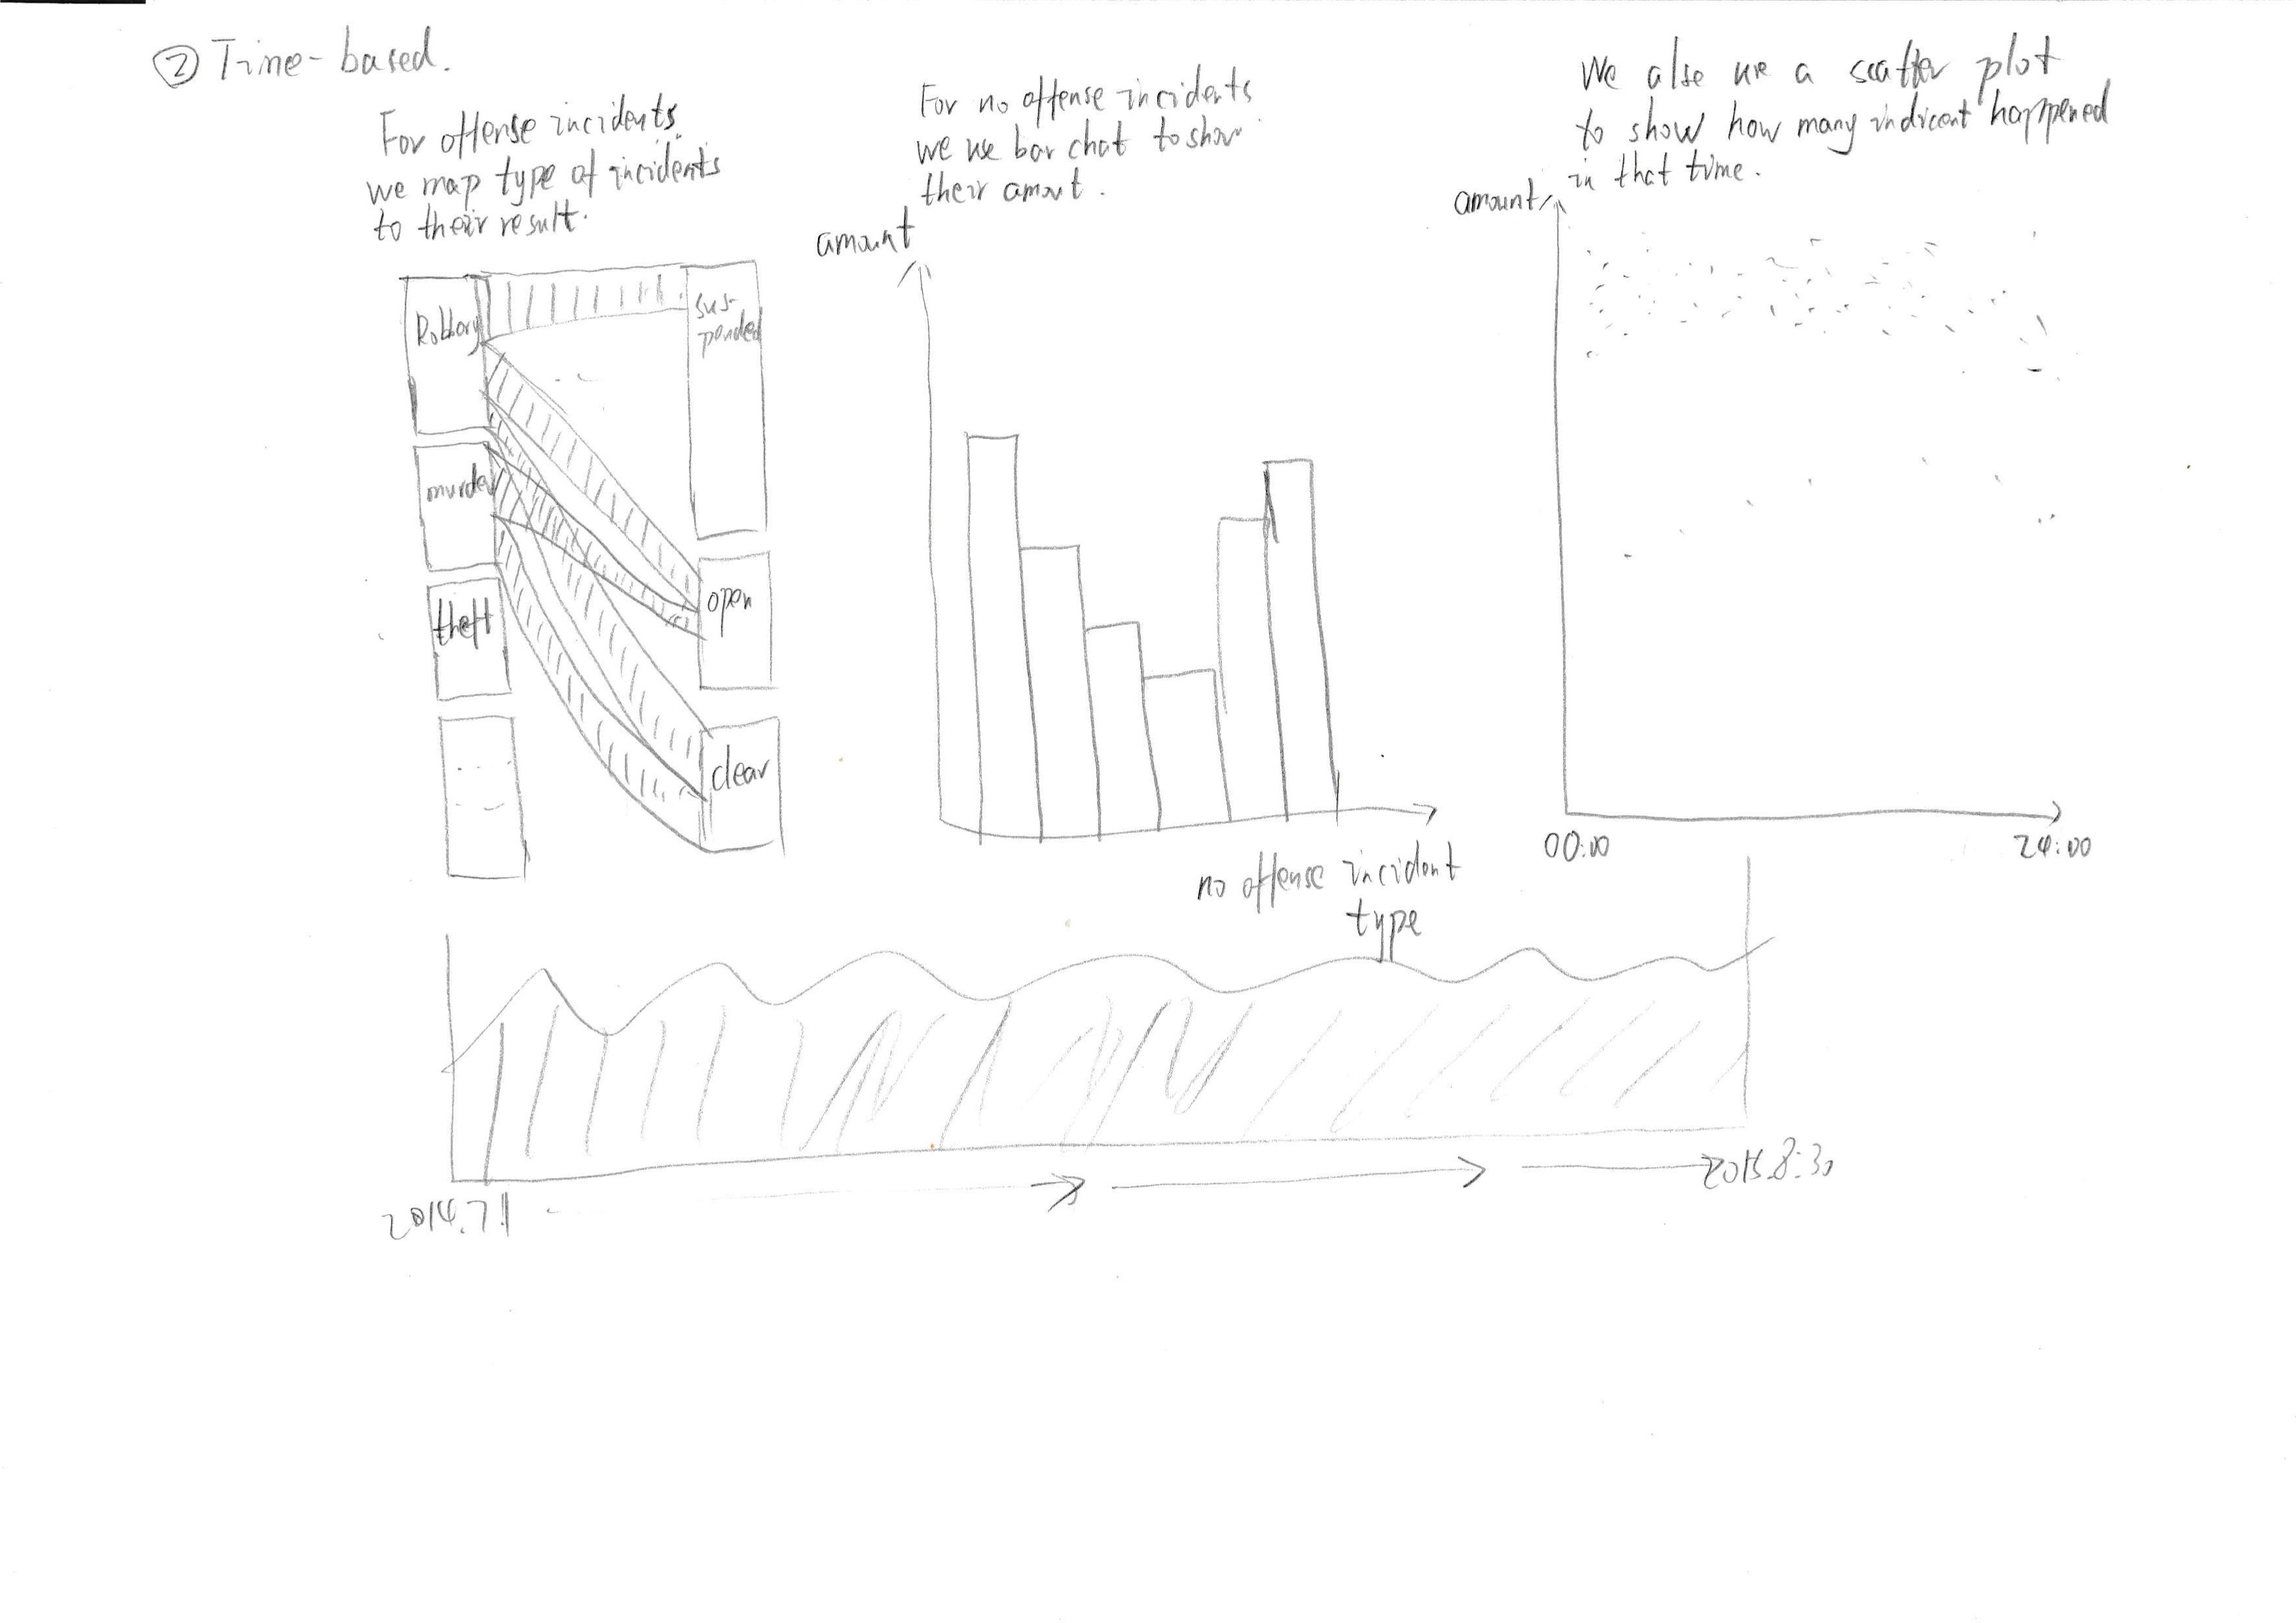 ② Time-based.
For offense incidents.
we map type of incidents
to their result.
Robbory
murder
theft
sus-
pended
open
clear
For no offense incidents
we use bar chat to show
their amout.
amount
no offense incident
type
We also use a scatter plot
to show how many indicent happened
in that time.
amount
00:00
24:00
2014.7.1
2015.8.30